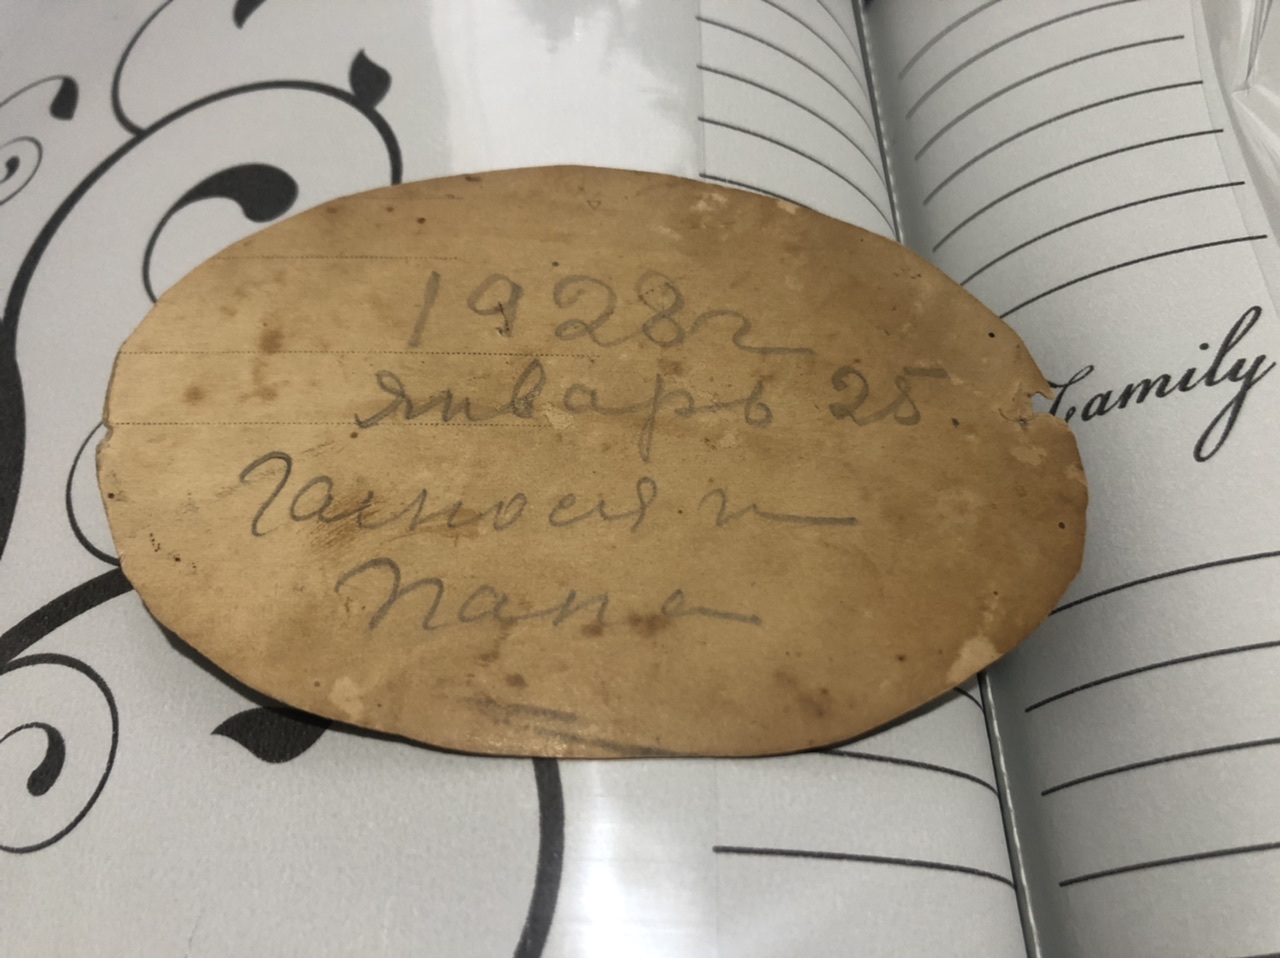 1928г
январь 25.
и
папа
Family